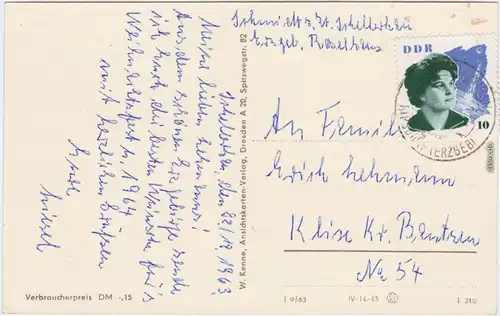 Schmidt z. Zt. Schellerhau
Erzgeb. Posthaus
Schellerhau, den 22/12 1963
Meine lieben Lehmanns!
Aus dem schönen Erzgebirge sende
ich Euch die besten Wünsche für's
Weihnachtsfest u. 1964
mit herzlichen Grüßen
Eure
DDR
10
An Familie
Erich Lehmann
Klix Kr. Bautzen
No 54
W. Kenne, Ansichtskarten-Verlag, Dresden A 20, Spitzwegstr. 82
Verbraucherpreis DM -,15
J 9/63 IV-14-45
L 310